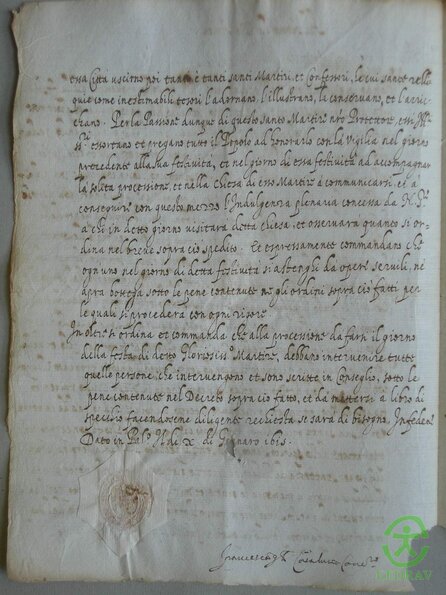 essa Città uscirno poi tanti e tanti santi Martiri, et Confessori, le cui sante reli
quie come inestimabili tesori l'adornano, l'illustrano, la conservano, et l'arric
chano. Per la Passione dunque di questo santo Martire nro Protettore, essi
essortano et pregano tutto il Popolo ad honorarlo con la Vigilia nel giorno
precedente alla sua festività, et nel giorno di essa festività ad accompagnar
la solita processione, et nella chiesa di esso Martire à communicarsi, et à
conseguire con questo mezzo l'Indulgenza plenaria concessa da N. S.
a chi in detto giorno visitarà detta chiesa, et osservarà quanto si or
dina nel breve sopra ciò spedito. Et espressamente commandano che
ogn'uno nel giorno di detta festività si astenghi da opere servili, ne
apra bottega sotto le pene contenute ne gli ordini sopra ciò fatti per
le quali si procederà con ogni rigore.
In oltre si ordina et commanda che alla processione da farsi il giorno
della festa di detto Glorioso Martire, debbano intervenire tutte
quelle persone che intervengono et sono scritte in Conseglio, sotto le
pene contenute nel Decreto sopra ciò fatto, et da mettersi à libro di
specchio facendosene diligente rechiesta se sarà di bisogno, In fede
Dato in Pal. li X di Gennaro 1615.
Francesco
CEDRAV